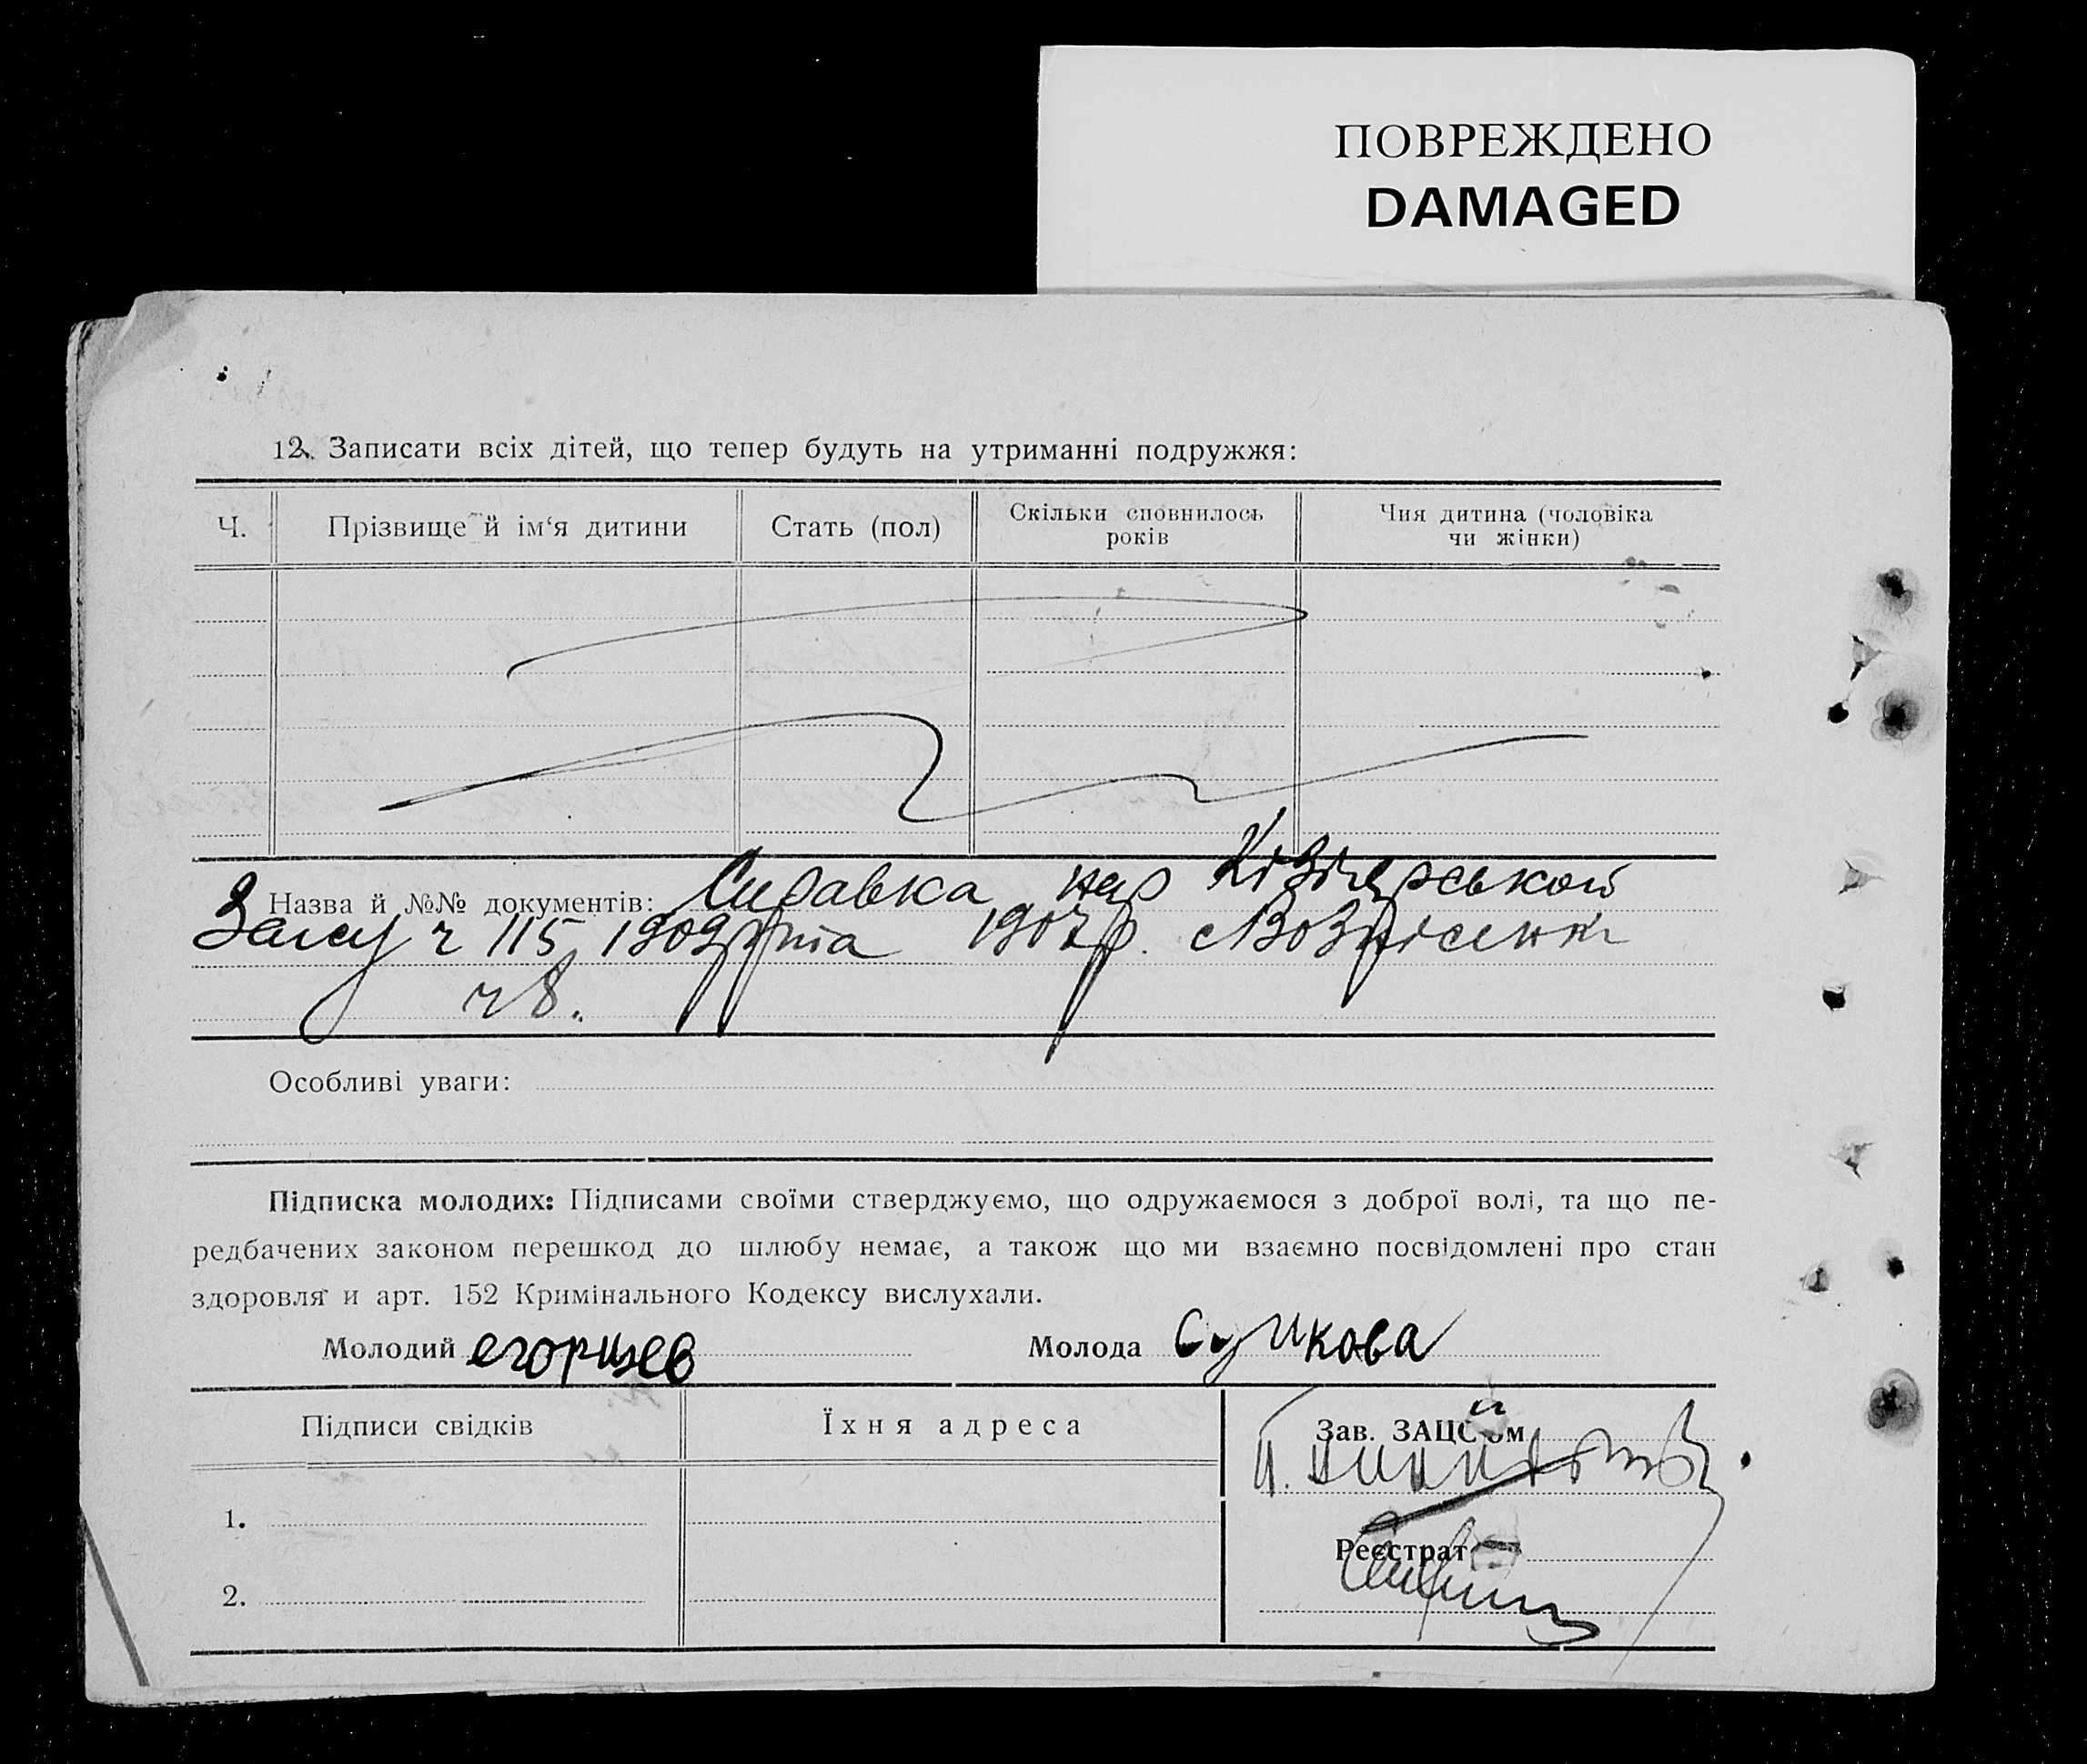 ПОВРЕЖДЕНО
DAMAGED
12. Записати всіх дітей, що тепер будуть на утриманні подружжя:
Ч. Прізвище й ім‘я дитини Стать (пол) Скільки сповнилось років Чия дитина (чоловіка чи жінки)
Назва й №№ документів: Справка
ч 115 1909р та 1907р.
ч 8.
Особливі уваги:
Підписка молодих: Підписами своїми стверджуємо, що одружаємося з доброї волі, та що пе-
редбачених законом перешкод до шлюбу немає, а також що ми взаємно посвідомлені про стан
здоровля и арт. 152 Кримінального Кодексу вислухали.
Молодий егоршев Молода Сушкова
Підписи свідків Їхня адреса Зав. ЗАЦС‘ом
1.
Реєстрат
2.